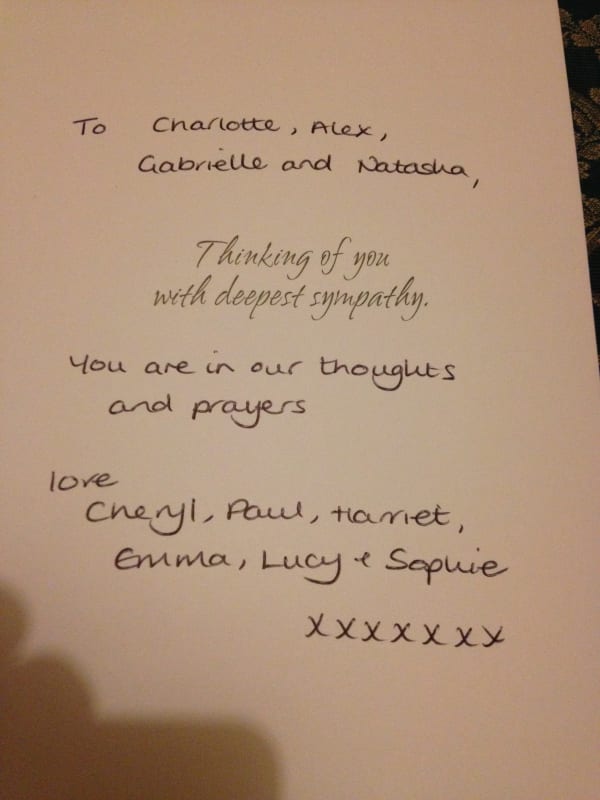 To Charlotte, Alex,
Gabrielle and Natasha,
Thinking of you
with deepest sympathy.
You are in our thoughts
and prayers
love
Cheryl, Paul, Harriet,
Emma, Lucy + Sophie
xxxxxxx